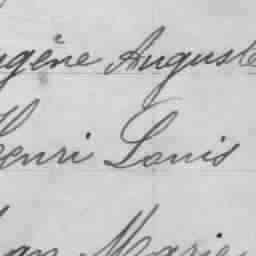 Eugène Auguste
Henri Louis
Marie